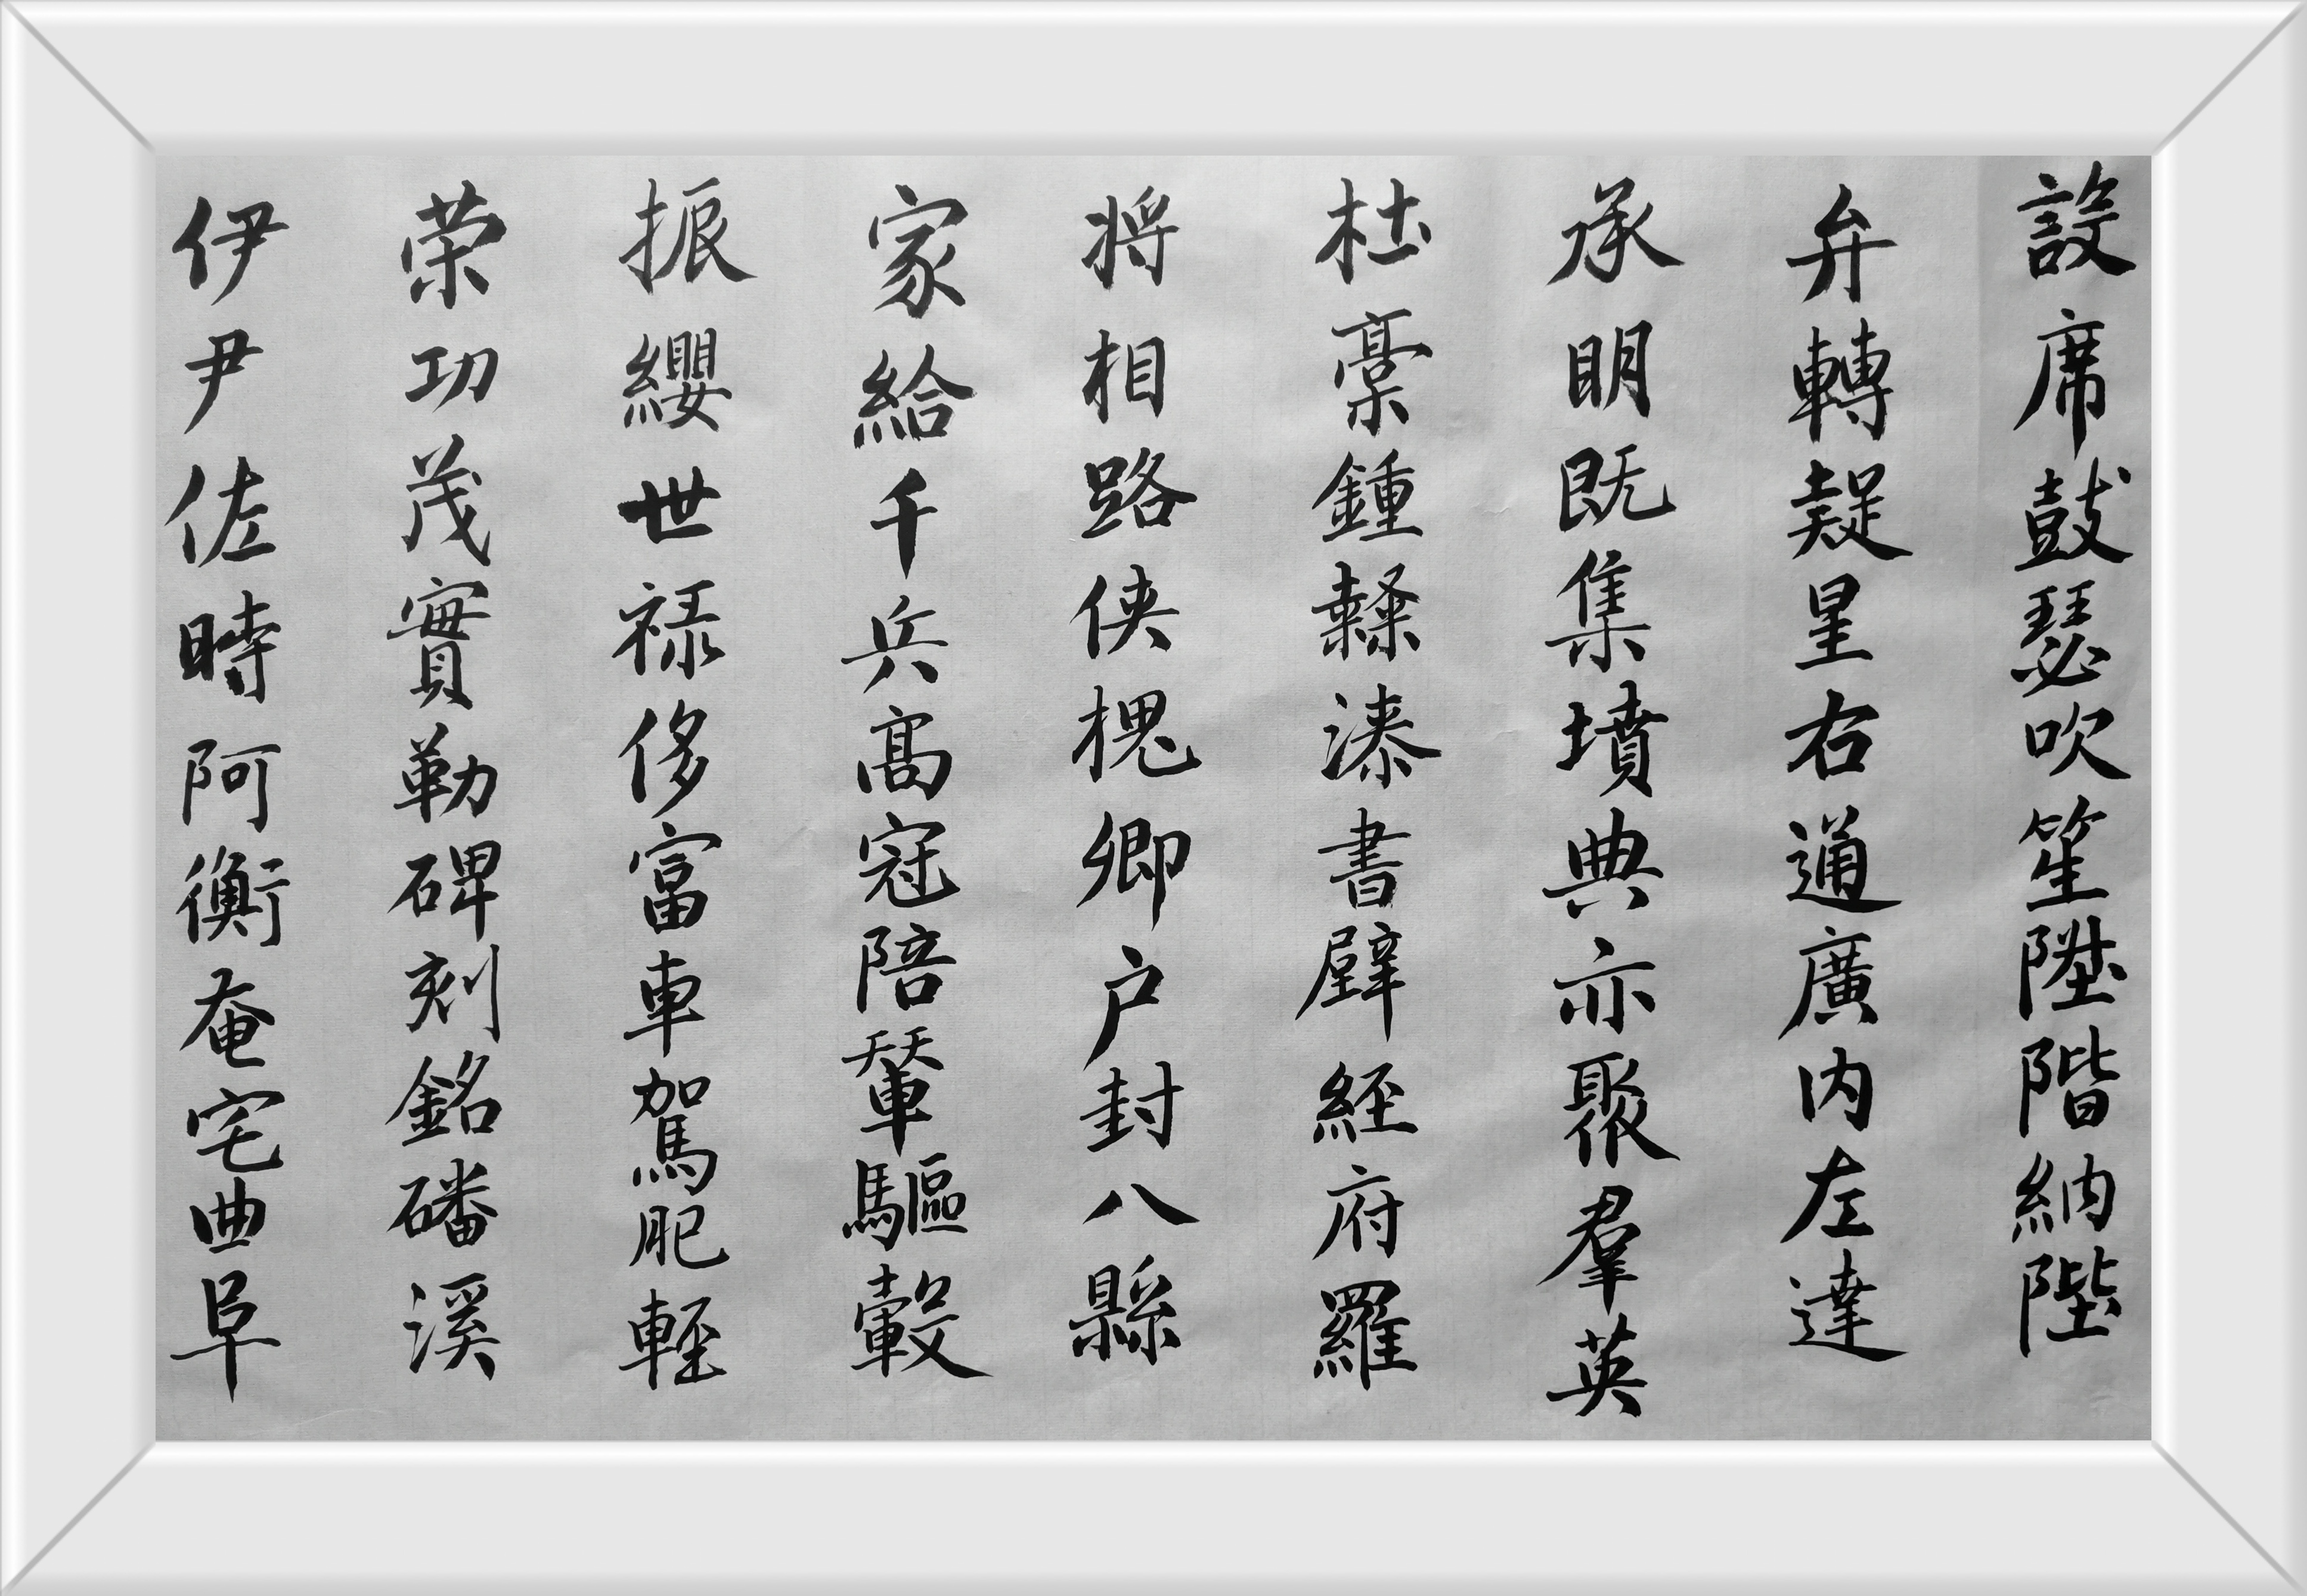 設席鼓瑟吹笙陞階納陛
弁轉疑星右通廣内左達
承明既集墳典亦聚羣英
杜稾鍾隸漆書壁経府羅
将相路侠槐卿户封八縣
家給千兵髙冠陪輦驅轂
振纓世禄侈富車駕肥軽
荣功茂實勒碑刻銘磻溪
伊尹佐時阿衡奄宅曲阜